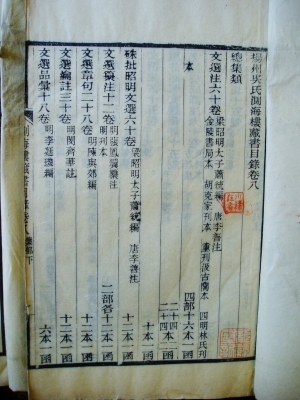 揚州吳氏測海樓藏書目錄卷八
總集類
文選注六十卷 梁昭明太子蕭統編 唐李善注
金陵書局本 胡克家刊本 重刊汲古閣本 四明林氏刊
本
四部十六本一函
二十四本二函
十本一函
硃批昭明文選六十卷 梁昭明太子蕭統編 唐李善注
十二本一函
文選纂注十二卷 明張鳳翼纂注
明刊本
二部各十二本一函
文選章句二十八卷 明陳與郊編
十二本一函
文選瀹註三十卷 明閔齊華註
十二本一函
文選品彙十八卷 明李廷機編
六本一函